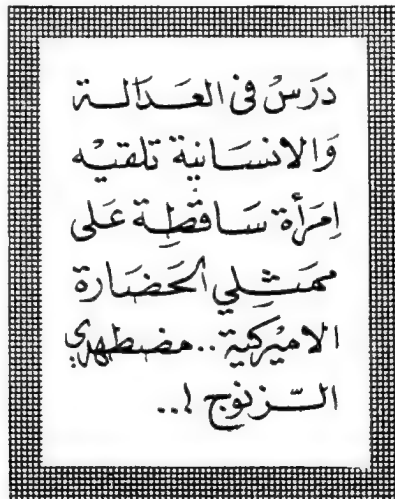 دَرسْ فى العَدَالة
وَالانسَانية تلقيْه
اِمرَأة سَاقطِة عَلى
ممثِلي الحَضَارة
الاميْركية..مضطهدي
الزنوج !..